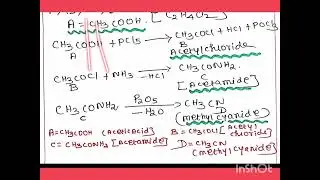 A = CH3COOH. [C2H4O2]
CH3COOH + PCl5 → CH3COCl + HCl + POCl3
B
Acetylchloride
CH3COCl + NH3 –HCl → CH3CONH2.
C
[Acetamide]
CH3CONH2 P2O5 –H2O → CH3CN
C D
(methylcyanide)
A=CH3COOH (Acetic acid) B = CH3COCl [Acetyl chloride]
C= CH3CONH2 [Acetamide] D= CH3CN (methylcyanide)
InShot